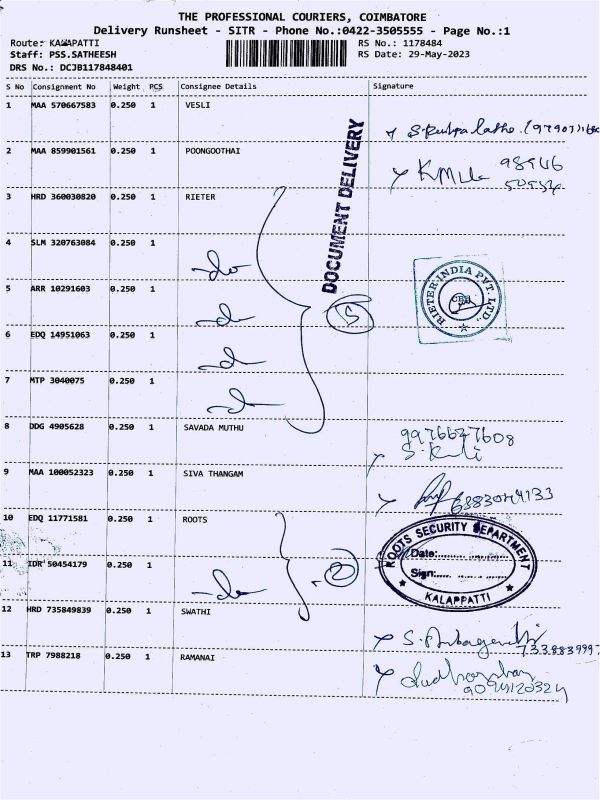 THE PROFESSIONAL COURIERS, COIMBATORE
Delivery Runsheet - SITR - Phone No.:0422-3505555 - Page No.:1
Route: KALAPATTI
RS No.: 1178484
Staff: PSS.SATHEESH
RS Date: 29-May-2023
DRS No.: DCJB117848401
S No Consignment No Weight PCS Consignee Details Signature
1 MAA 570667583 0.250 1 VESLI
2 MAA 859901561 0.250 1 POONGOOTHAI
3 HRD 360030820 0.250 1 RIETER
DOCUMENT DELIVERY
4 SLM 320763084 0.250 1 -do-
5 ARR 10291603 0.250 1 -do-
5
RIETER INDIA PVT. LTD.,
6 EDQ 14951063 0.250 1 -do-
7 MTP 3040075 0.250 1 -do-
8 DDG 4905628 0.250 1 SAVADA MUTHU
9 MAA 100052323 0.250 1 SIVA THANGAM
10 EDQ 11771581 0.250 1 ROOTS
ROOTS SECURITY DEPARTMENT
Date:
Sign:
KALAPPATTI
11 IDR 50454179 0.250 1 -do-
2
12 HRD 735849839 0.250 1 SWATHI
13 TRP 7988218 0.250 1 RAMANAI